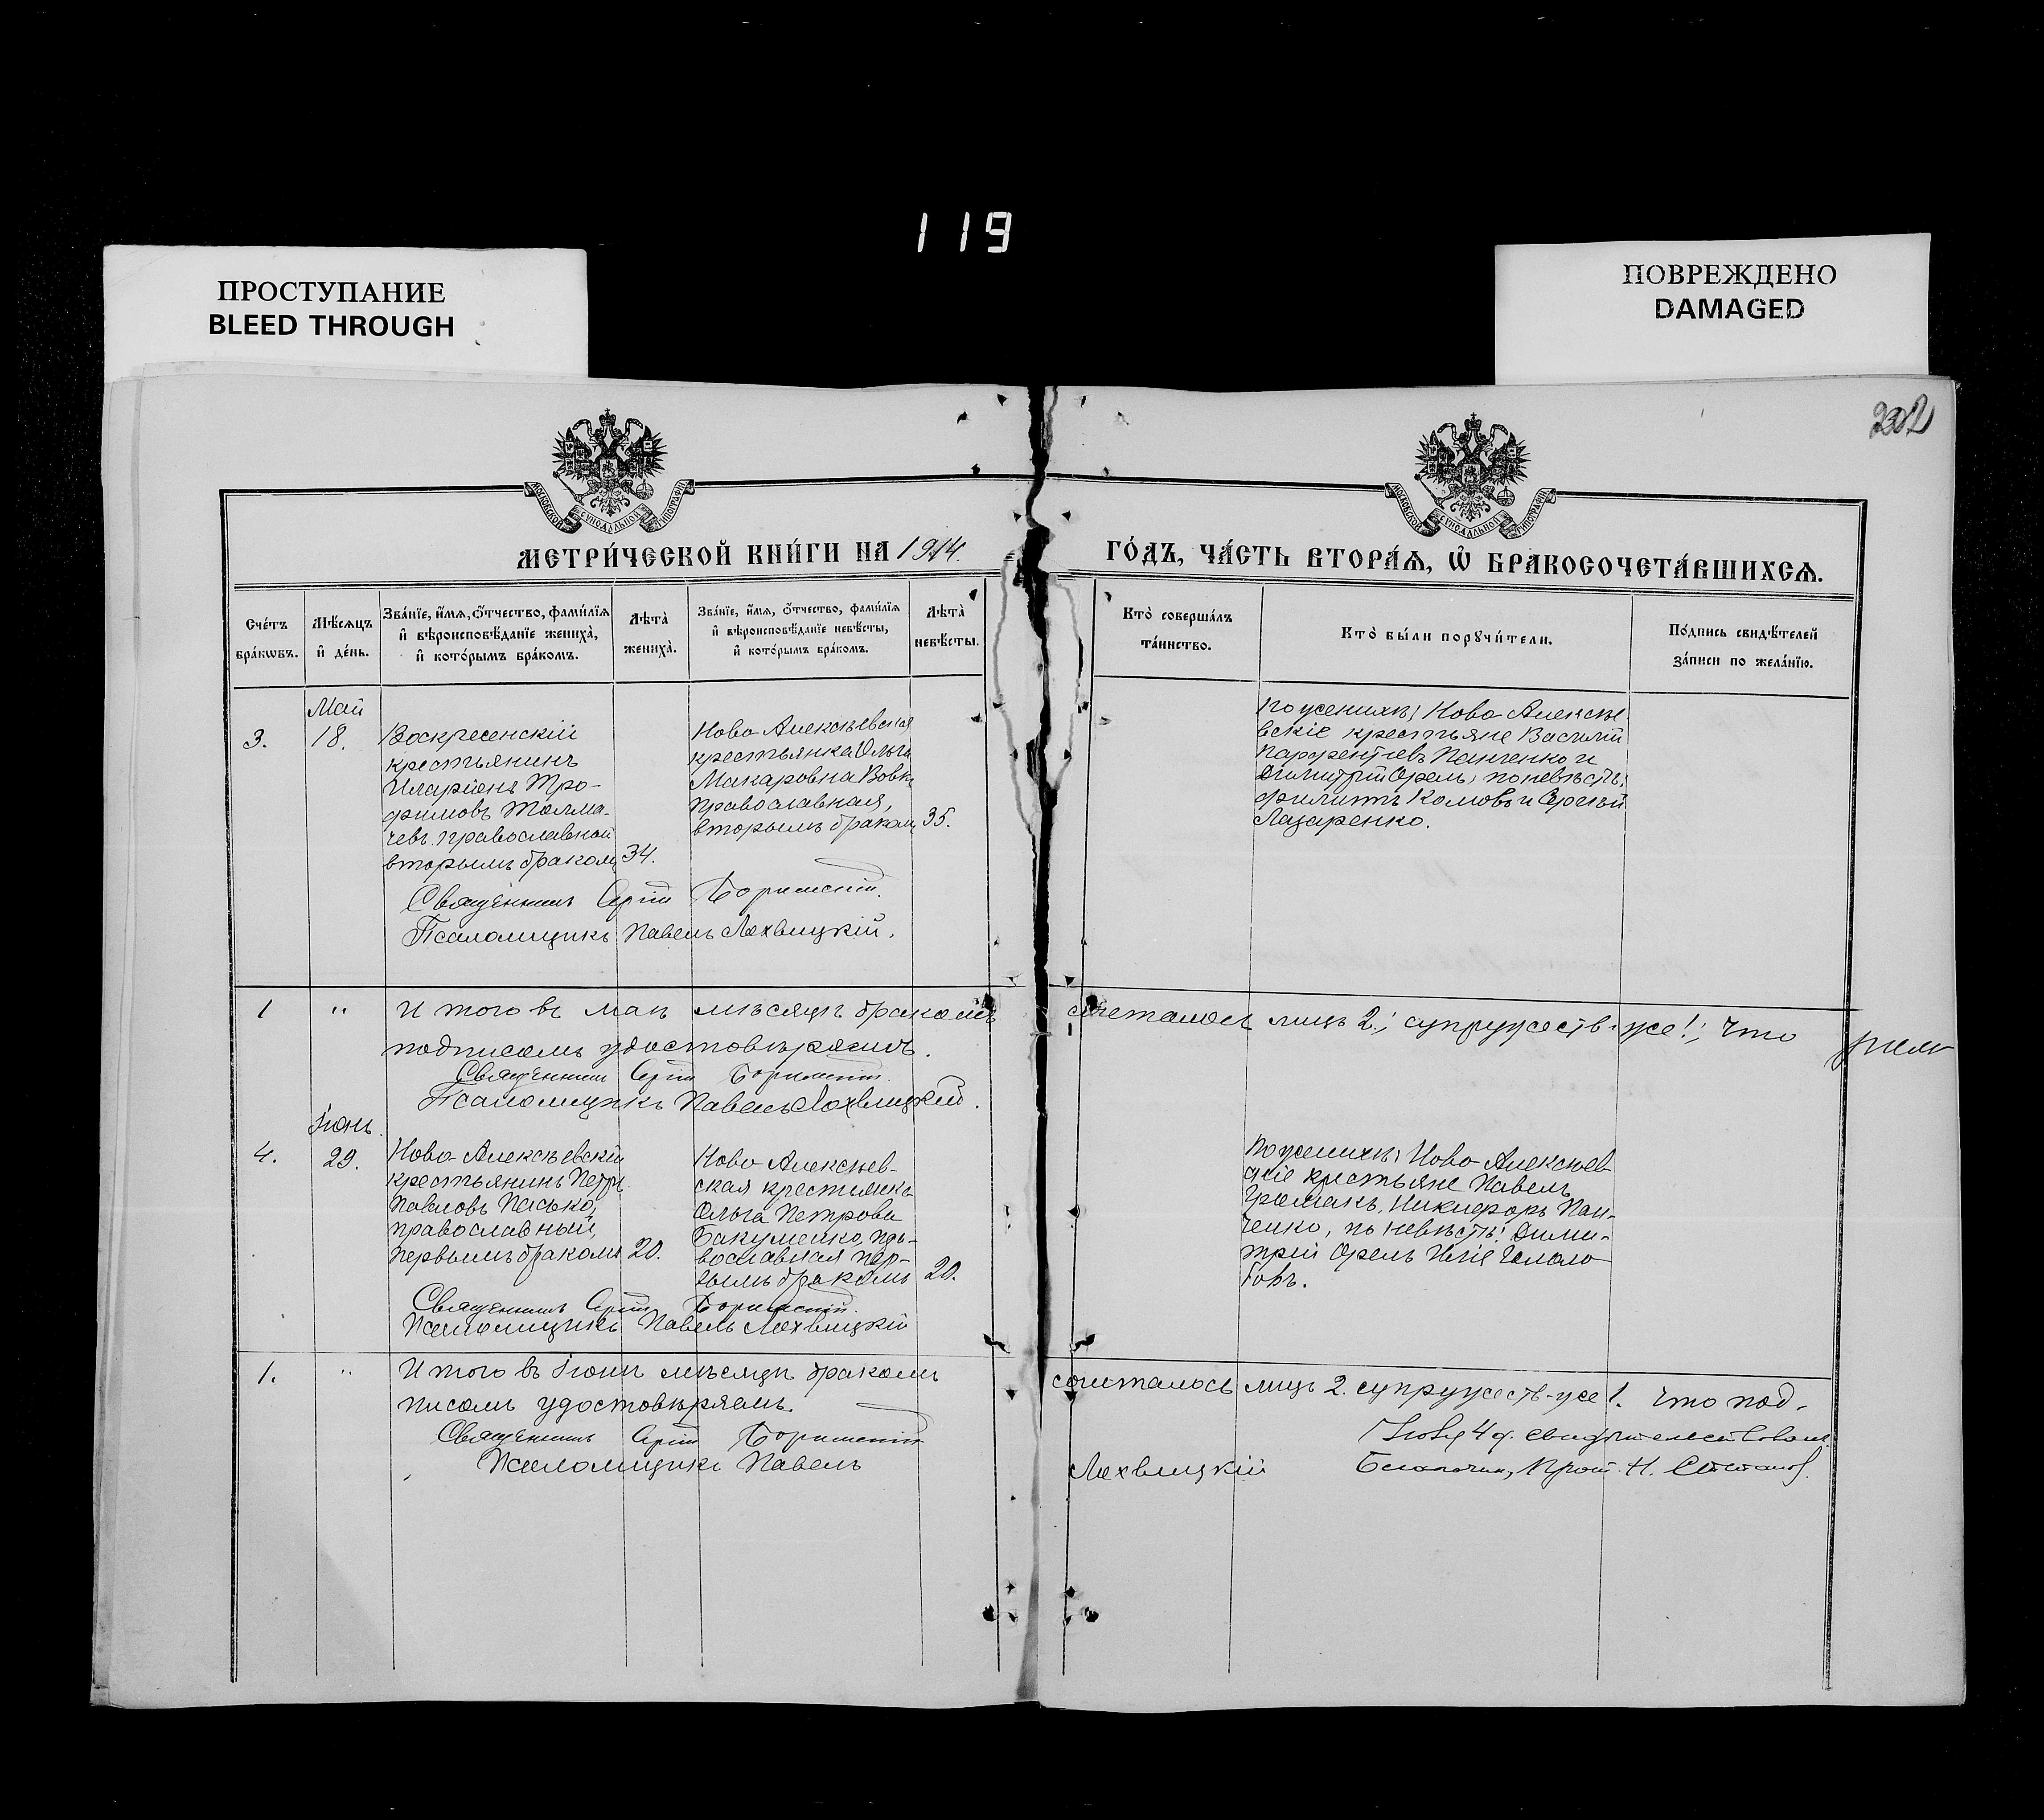 119
ПРОСТУПАНИЕ
BLEED THROUGH
ПОВРЕЖДЕНО
DAMAGED
МОСКОВСКОЙ СУНОДАЛЬНОЙ ТИПОГРАФІИ
МОСКОВСКОЙ СУНОДАЛЬНОЙ ТИПОГРАФІИ
МЕТРИ́ЧЕСКОЙ КНИ́ГИ НА 1914. ГО́ДЪ, ЧА́СТЬ ВТОРА́Ѧ, Ѡ҆ БРАКОСОЧЕТА́ВШИХСѦ.
Сче́тъ бра́кѡвъ.
Мѣ́сѧцъ и҆ де́нь.
Зва́нїе, и҆́мѧ, ѻ҆́тчество, фами́лїѧ и҆ вѣроисповѣ́данїе жениха̀, и҆ кото́рымъ бра́комъ.
Лѣта̀ жениха̀.
Зва́нїе, и҆́мѧ, ѻ҆́тчество, фами́лїѧ и҆ вѣроисповѣ́данїе невѣ́сты, и҆ кото́рымъ бра́комъ.
Лѣта̀ невѣ́сты.
Кто̀ соверша́лъ та́инство.
Кто̀ бы́ли порꙋчи́тели.
По́дпись свидѣ́телей за́писи по жела́нїю.
3.
Май
18.
Воскресенскій
крестьянинъ
Иларіонъ Тро-
фимовъ Толма-
чевъ православный
вторымъ бракомъ
34.
Ново Алексѣевская
крестьянка Ольга
Макаровна Вовк
православная,
вторымъ бракомъ
35.
По женихѣ: Ново Алексѣе-
вскіе крестьяне Василій
Парфентіевъ Панченко и
Димитрій Орелъ, по невѣстѣ:
Филиппъ Комовъ и Сергѣй
Лазаренко.
Священникъ Сергій
Псаломщикъ Павелъ Лохвицкій.
1 " Итого въ маѣ мѣсяцѣ бракомъ сочеталось лицъ 2.; супружествъ-же 1.; что
подписомъ удостовѣряемъ.
Священникъ Сергій
Псаломщикъ Павелъ Лохвицкій.
4.
Іюнь.
29.
Ново-Алексѣевскій
крестьянинъ Петръ
Павловъ Пасько,
православный,
первымъ бракомъ
20.
Ново Алексѣев-
ская крестьянка
Ольга Петрова
Бакуменко, пра-
вославная пер-
вымъ бракомъ
20.
По женихѣ: Ново Алексѣев-
скіе крестьяне Павелъ
Громакъ, Никифоръ Пан-
ченко, по невѣстѣ: Дими-
трій Орелъ Илія Гололо-
бовъ.
Священникъ Сергій
Псаломщикъ Павелъ Лохвицкій
1. " Итого въ Іюнѣ мѣсяцѣ бракомъ сочеталось лицъ 2. супружествъ-же 1. что под-
писомъ удостовѣряемъ.
Священникъ Сергій
Псаломщикъ Павелъ Лохвицкій
свидѣтельствовалъ
Благочин. Прот. Н.